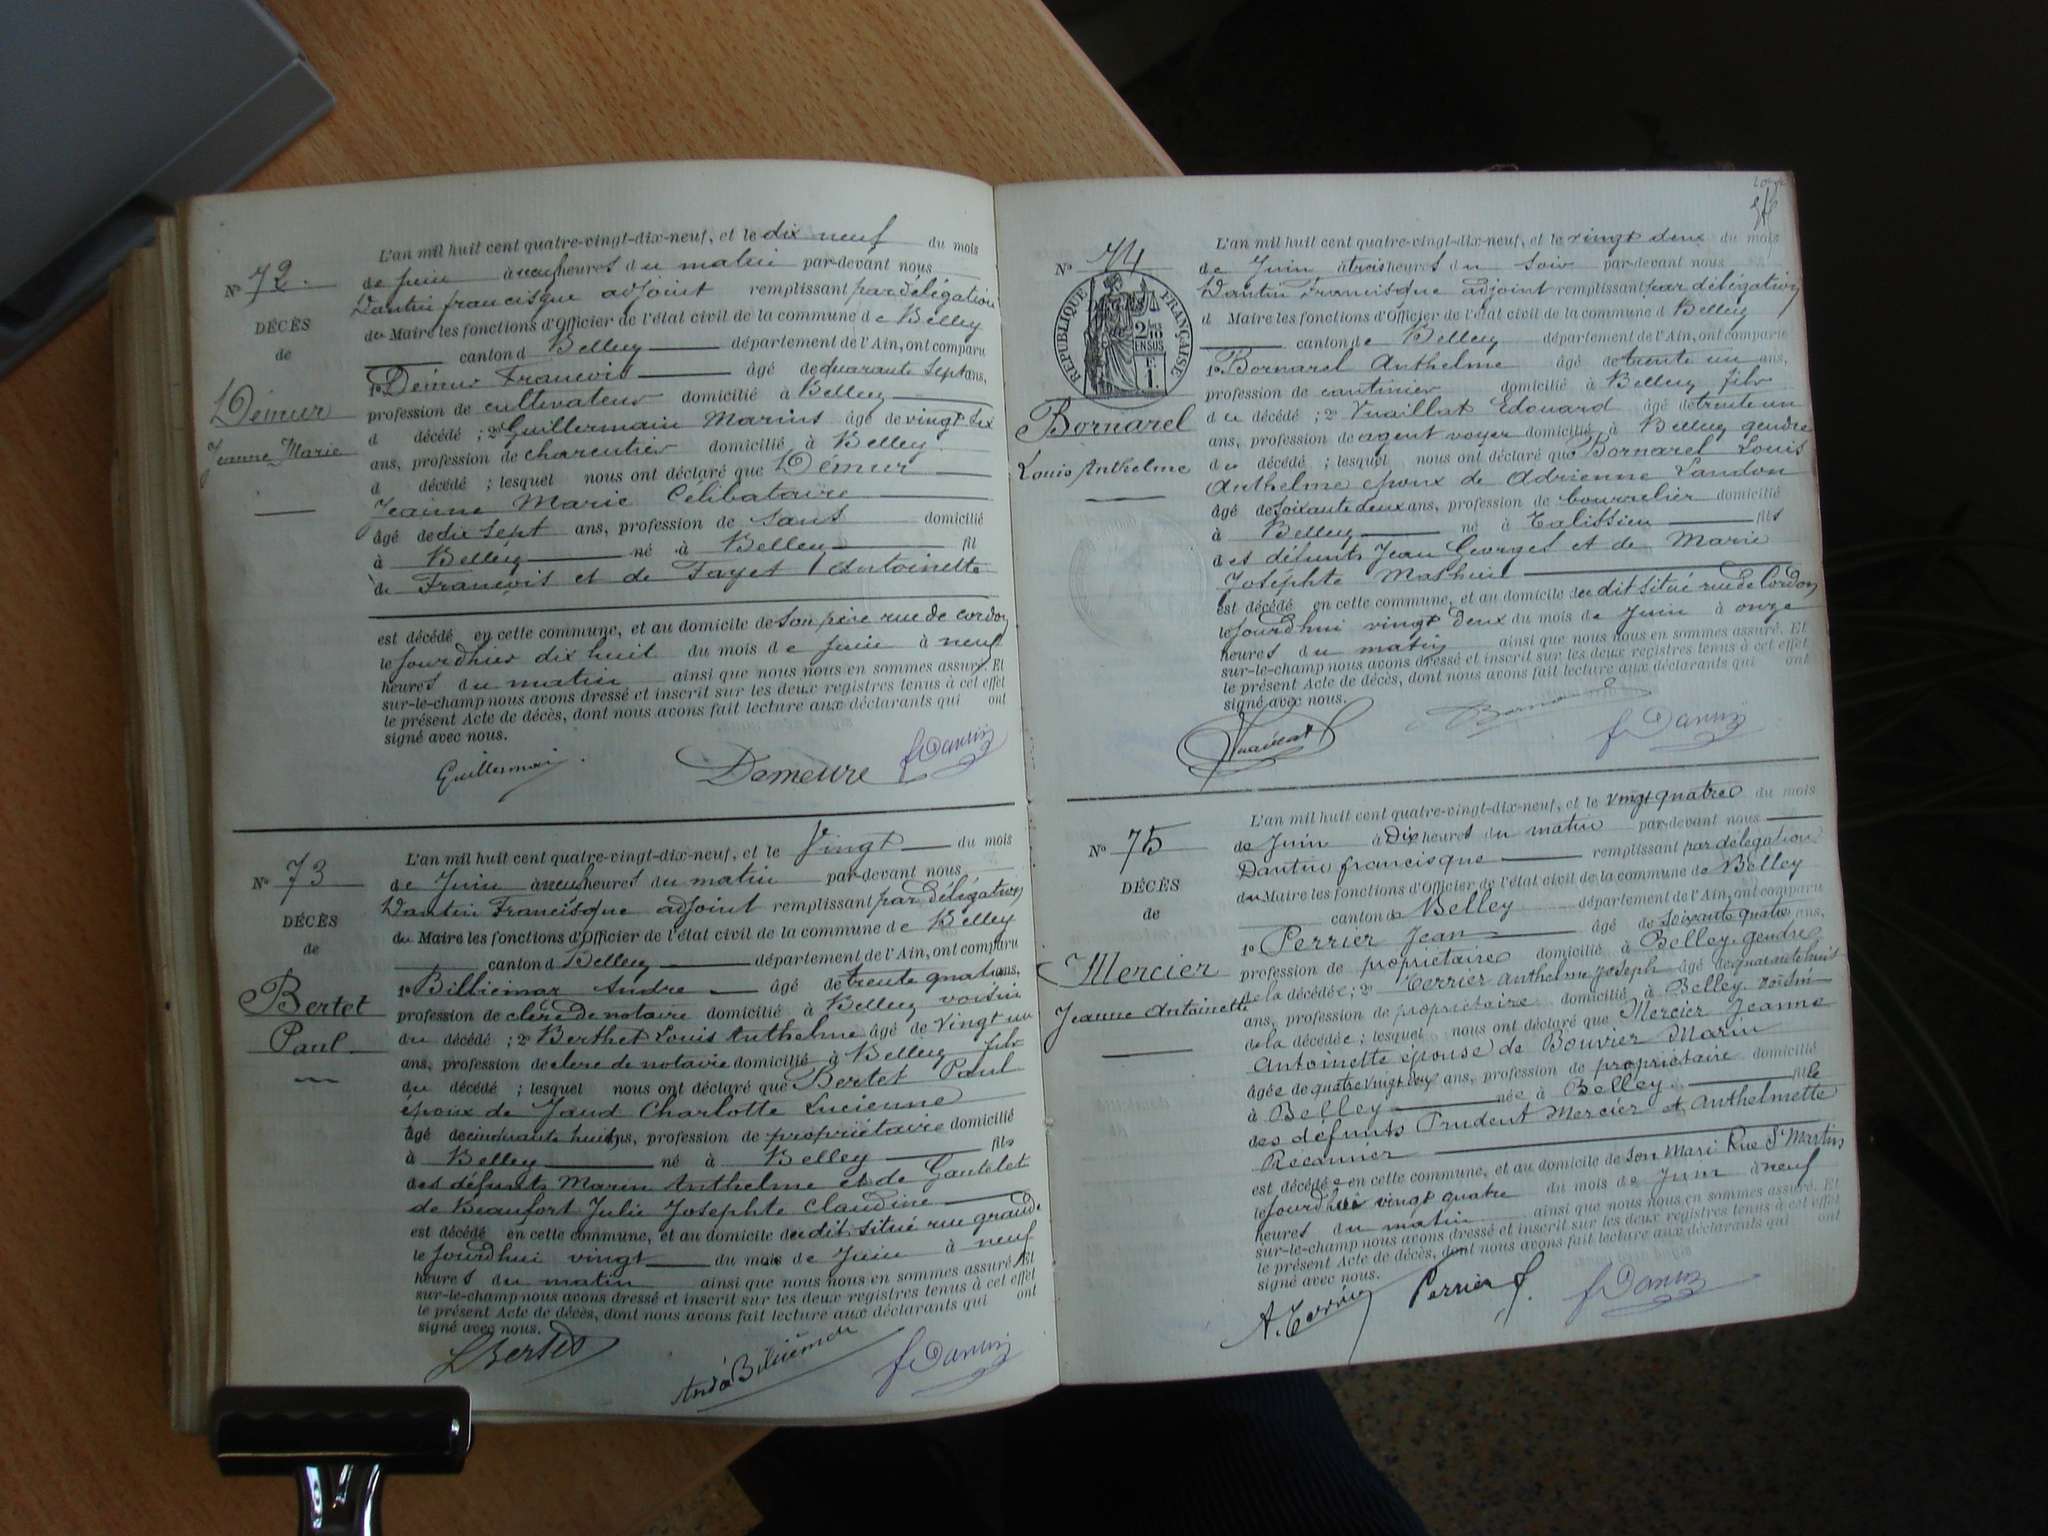 L'an mil huit cent quatre-vingt-dix-neuf, et le dix neuf du mois
N° 72.
de juin à neuf heures du matin par-devant nous
Dantin francisque adjoint remplissant par délégation
DÉCÈS
du Maire les fonctions d'Officier de l'état civil de la commune de Belley
de
canton d Belley département de l'Ain, ont comparu
1° Démur François âgé de quarante sept ans,
Démur
profession de cultivateur domicilié à Belley
Jeanne Marie
d décédé ; 2° Guillermain Marius âgé de vingt six
ans, profession de charcutier domicilié à Belley
d décédé ; lesquel nous ont déclaré que Démur
Jeanne Marie Célibataire
âgé de dix sept ans, profession de sans domicilié
à Belley né à Belley fil
de François et de Fayet Antoinette
est décédé en cette commune, et au domicile de son père rue de cordon
le jourdhier dix huit du mois de juin à neuf
heures du matin ainsi que nous nous en sommes assuré. Et
sur-le-champ nous avons dressé et inscrit sur les deux registres tenus à cet effet
le présent Acte de décès, dont nous avons fait lecture aux déclarants qui ont
signé avec nous.
Guillermain Demeure f Dantin
L'an mil huit cent quatre-vingt-dix-neuf, et le Vingt du mois
N° 73
de Juin à neuf heures du matin par-devant nous
Dantin Francisque adjoint remplissant par délégation
DÉCÈS
du Maire les fonctions d'Officier de l'état civil de la commune de Belley
de
canton d Belley département de l'Ain, ont comparu
1° Billiemaz André âgé de trente quatre ans,
Bertet
profession de clerc de notaire domicilié à Belley voisin
Paul
du décédé ; 2° Berthet Louis Anthelme âgé de Vingt un
ans, profession de clerc de notaire domicilié à Belley fils
du décédé ; lesquel nous ont déclaré que Bertet Paul
époux de Jaud Charlotte Lucienne
âgé de cinquante huit ans, profession de propriétaire domicilié
à Belley né à Belley fils
des défunts Marin Anthelme et de Gautelet
de Beaufort Julie Josephte Claudine
est décédé en cette commune, et au domicile du dit situé rue grande
le jourdhui vingt du mois de Juin à neuf
heures du matin ainsi que nous nous en sommes assuré. Et
sur-le-champ nous avons dressé et inscrit sur les deux registres tenus à cet effet
le présent Acte de décès, dont nous avons fait lecture aux déclarants qui ont
signé avec nous.
L Bertet André Billiemaz f Dantin
L'an mil huit cent quatre-vingt-dix-neuf, et le vingt deux du mois
N° 74
de Juin à trois heures du soir par-devant nous
Dantin Francisque adjoint remplissant par délégation
RÉPUBLIQUE FRANÇAISE
d Maire les fonctions d'Officier de l'état civil de la commune d Belley
canton de Belley département de l'Ain, ont comparu
1° Bornarel Anthelme âgé de trente un ans,
profession de cantinier domicilié à Belley fils
Bornarel
du décédé ; 2° Vuaillat Edouard âgé de trente un
ans, profession de agent voyer domicilié à Belley gendre
Louis Anthelme
du décédé ; lesquel nous ont déclaré que Bornarel Louis
Anthelme époux de Adrienne Landon
âgé de soixante deux ans, profession de bourrelier domicilié
à Belley né à Talissieu fils
des défunts Jean Georges et de Marie
Joséphte
est décédé en cette commune, et au domicile du dit situé rue de Cordon
le jourdhui vingt deux du mois de Juin à onze
heures du matin ainsi que nous nous en sommes assuré. Et
sur-le-champ nous avons dressé et inscrit sur les deux registres tenus à cet effet
le présent Acte de décès, dont nous avons fait lecture aux déclarants qui ont
signé avec nous.
Vuaillat Bornarel f Dantin
L'an mil huit cent quatre-vingt-dix-neuf, et le vingt quatre du mois
N° 75
de Juin à Dix heures du matin par-devant nous
Dantin francisque remplissant par délégation
DÉCÈS
du Maire les fonctions d'Officier de l'état civil de la commune de Belley
de
canton de Belley département de l'Ain, ont comparu
1° Perrier Jean âgé de soixante quatre ans,
Mercier
profession de propriétaire domicilié à Belley gendre
Jeanne Antoinette
de la décédée ; 2° Terrier Anthelme Joseph âgé de quarante huit
ans, profession de propriétaire domicilié à Belley voisin
de la décédée ; lesquel nous ont déclaré que Mercier Jeanne
Antoinette épouse de Bouvier Marin
âgée de quatre vingt deux ans, profession de propriétaire domicilié
à Belley née à Belley fille
des défunts Prudent Mercier et Anthelmette
Récamier
est décédée en cette commune, et au domicile de son Mari Rue St Martin
le jourdhui vingt quatre du mois de Juin à neuf
heures du matin ainsi que nous nous en sommes assuré. Et
sur-le-champ nous avons dressé et inscrit sur les deux registres tenus à cet effet
le présent Acte de décès, dont nous avons fait lecture aux déclarants qui ont
signé avec nous.
A. Terrier Perrier J. f Dantin